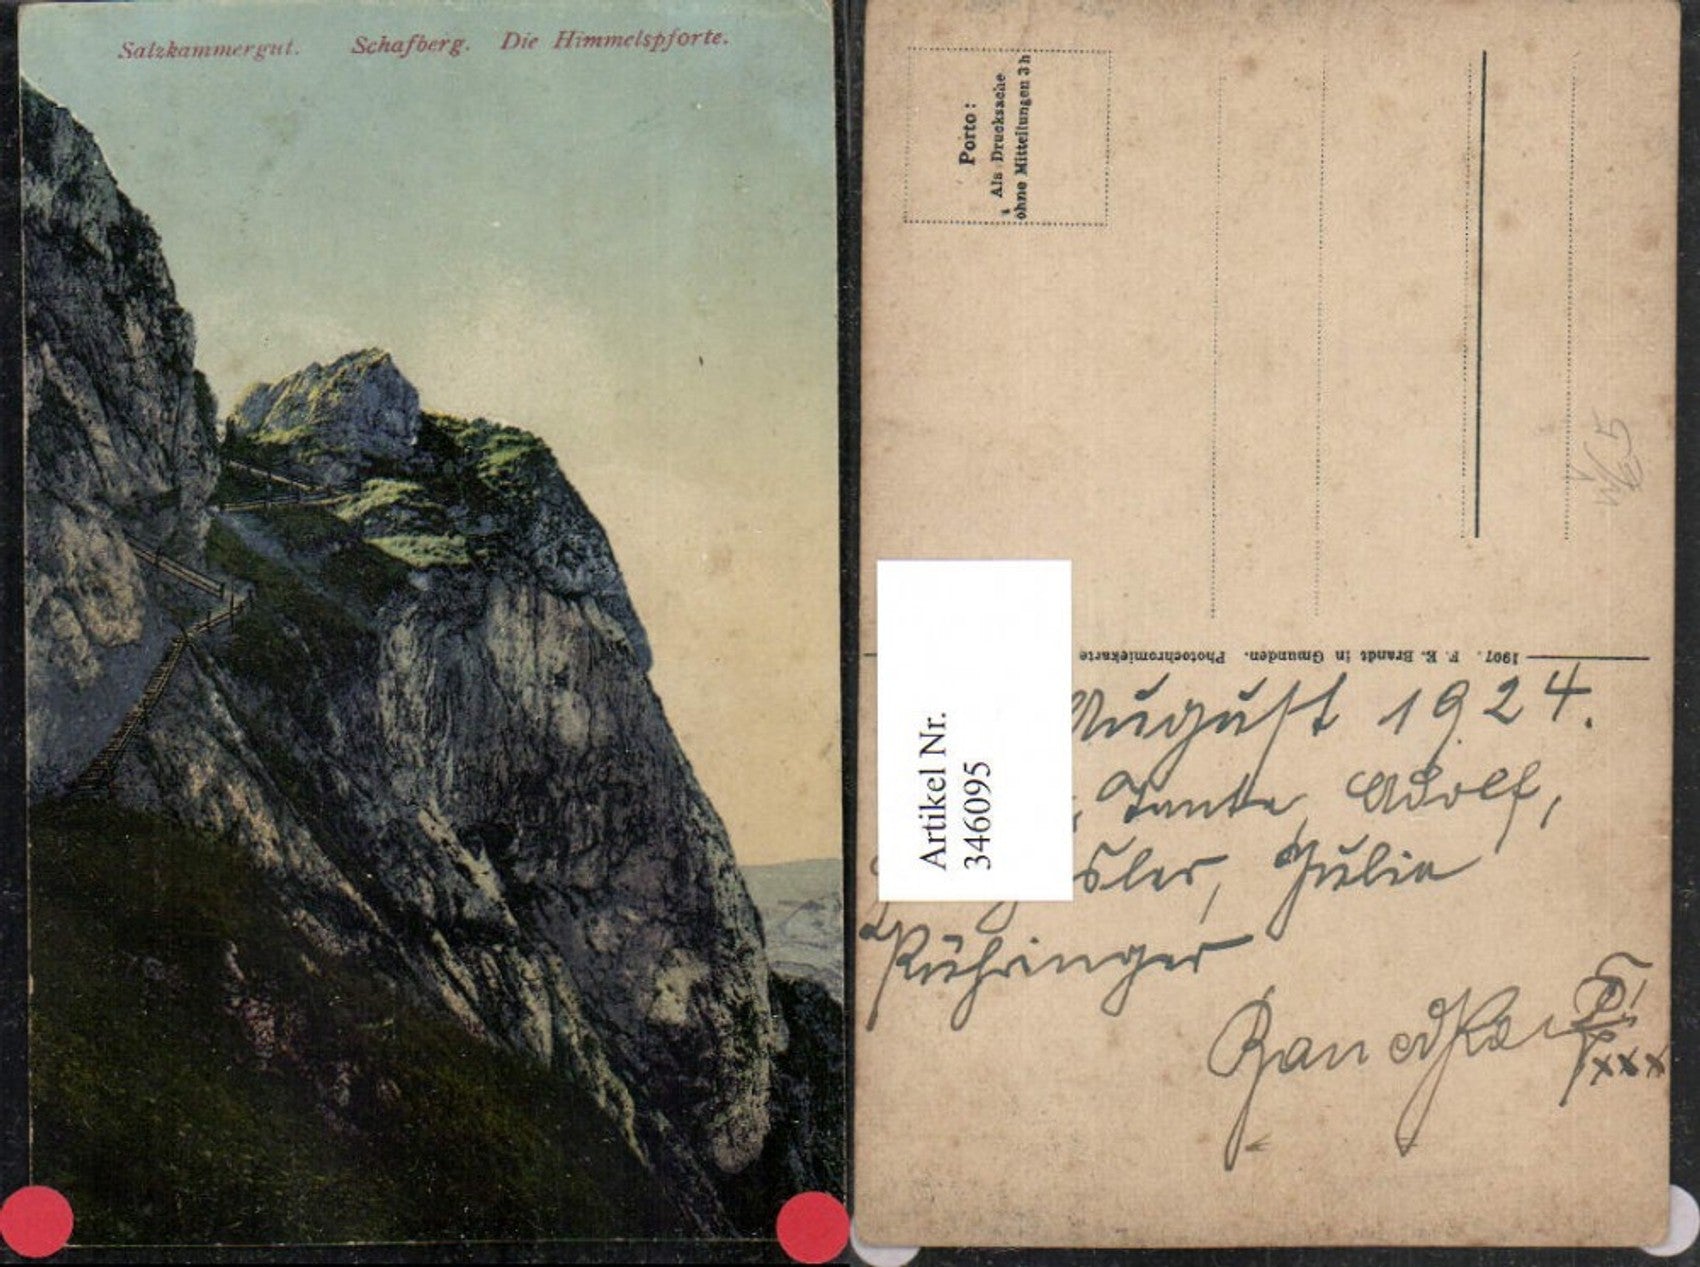 Salzkammergut. Schafberg. Die Himmelspforte.
Porto:
Als Drucksache
ohne Mitteilungen 3 h
1907. F. E. Brandt in Gmunden. Photochromiekarte
Artikel Nr.
346095
August 1924.
Tante, Adolf,
sler, Julia
Rühringer
xxx